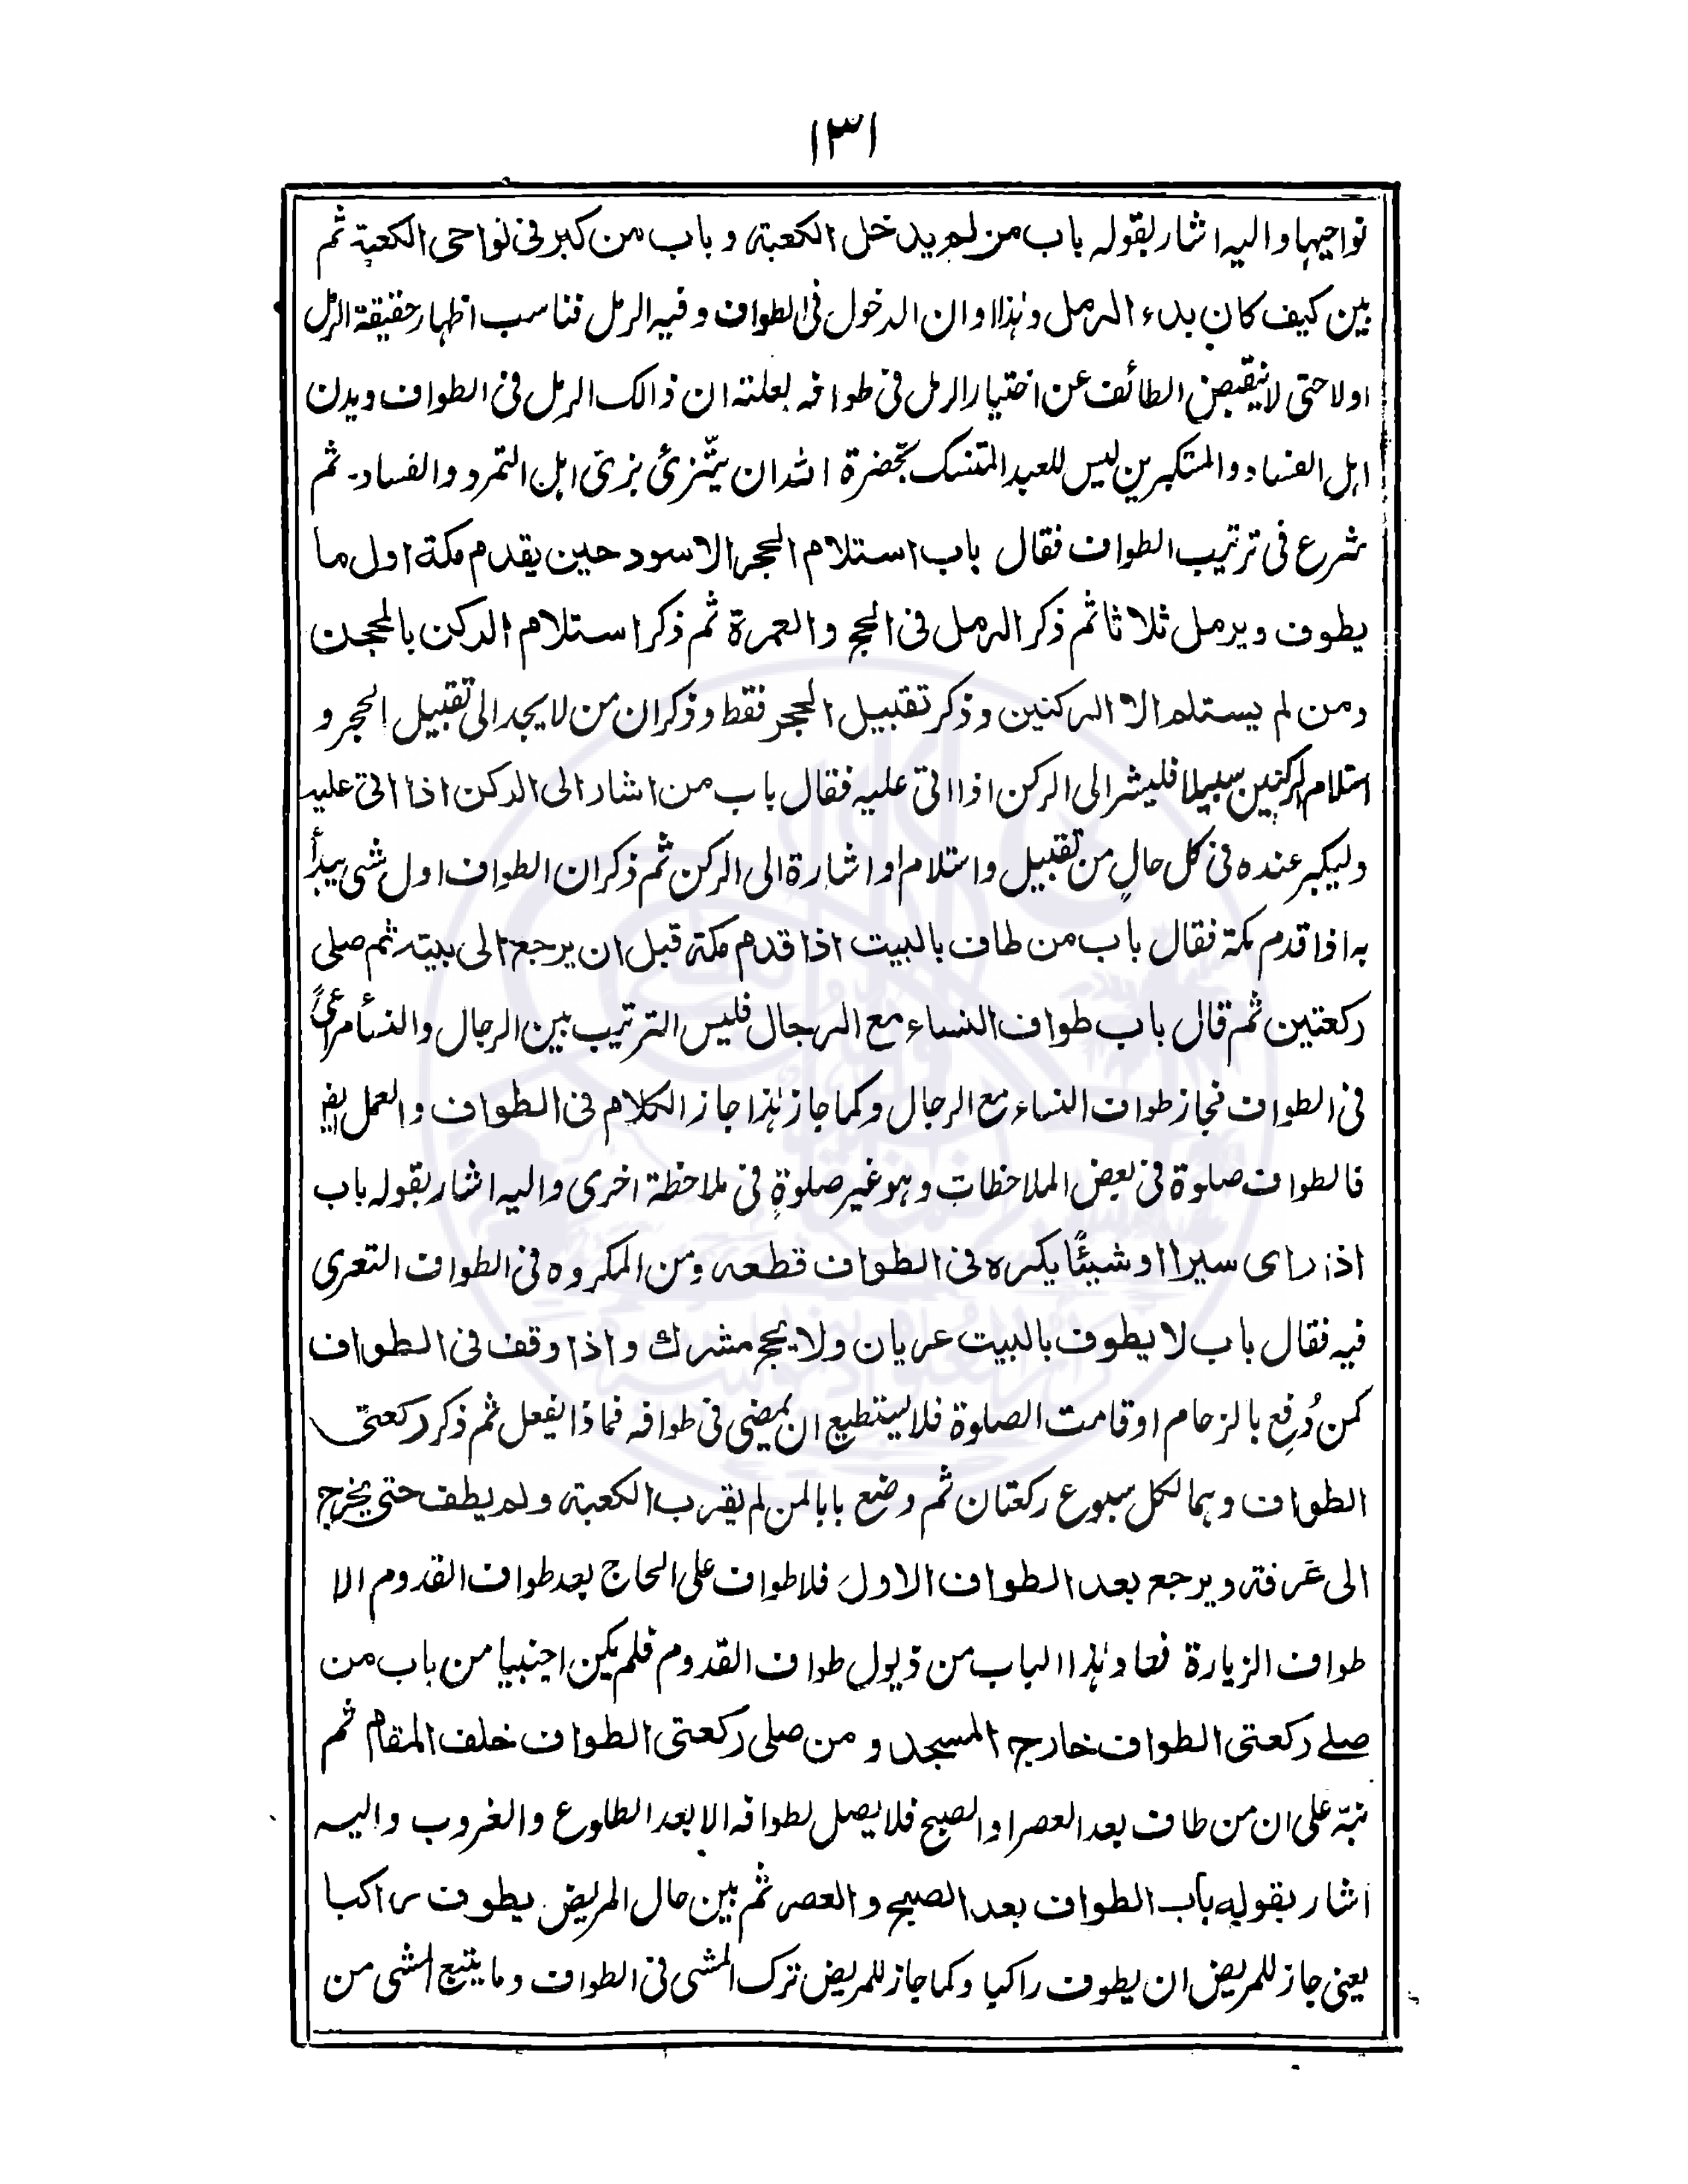 ١٣١
نواحيها واليه اشار بقوله باب من لم يدخل الكعبة و باب من كبر فى نواحى الكعبة ثم
بين كيف كان بدء الرمل وهذا اوان الدخول فى الطواف وفيه الرمل فناسب اظهار حقيقة الرمل
اولا حتى لا ينقبض الطائف عن اختيار الرمل فى طوافه بعلته ان ذالك الرمل فى الطواف ويدن
اهل الفساد والمتكبرين ليس للعبد المتنسك بحضرة الله ان يتزئ بزىّ اهل التمرد والفساد۔ ثم
شرع فى ترتيب الطواف فقال باب استلام الحجر الاسود حين يقدم مكة اول ما
يطوف ويرمل ثلاثا ثم ذكر الرمل فى الحج والعمرة ثم ذكر استلام الركن بالمحجن
ومن لم يستلم الا الركنين وذكر تقبيل الحجر فقط وذكر ان من لا يجد الى تقبيل الحجر و
استلام الركنين سبيلا فليشر الى الركن اذا اتى عليه فقال باب من اشار الى الركن اذا اتى عليه
وليكبر عنده فى كل حالٍ من تقبيل واستلام او اشارة الى الركن ثم ذكر ان الطواف اول شى يبدأ
به اذا قدم مكة فقال باب من طاف بالبيت اذا قدم مكة قبل ان يرجع الى بيته ثم صلى
ركعتين ثم قال باب طواف النساء مع الرجال فليس الترتيب بين الرجال والنسأ مرعىً
فى الطواف فجاز طواف النساء مع الرجال وكما جاز هذا جاز الكلام فى الطواف والعمل ايض
فالطواف صلوة فى بعض الملاحظات وهو غير صلوةٍ فى ملاحظة اخرى واليه اشار بقوله باب
اذا راى سيرا او شيئًا يكره فى الطواف قطعه ومن المكروه فى الطواف التعرى
فيه فقال باب لا يطوف بالبيت عريان ولا يحج مشرك و اذا وقف فى الطواف
كمن دُفِع بالزحام او قامت الصلوة فلا يستطيع ان يمضى فى طوافه فماذا يفعل ثم ذكر ركعتى
الطواف وهما لكل سبوع ركعتان ثم وضع بابا لمن لم يقرب الكعبة ولم يطف حتى يخرج
الى عَرفة ويرجع بعد الطواف الاول فلا طواف على الحاج بعد طواف القدوم الا
طواف الزيارة فعاد هذا الباب من ذيول طواف القدوم فلم يكن اجنبيا من باب من
صلے ركعتى الطواف خارج المسجد و من صلى ركعتى الطواف خلف المقام ثم
نبّه على ان من طاف بعد العصر او الصبح فلا يصل لطوافه الا بعد الطلوع والغروب واليه
اشار بقوله باب الطواف بعد الصبح والعصر ثم بين حال المريض يطوف راكبا
يعنى جاز للمريض ان يطوف راكبا وكما جاز للمريض ترك المشى فى الطواف وما يتبع المشى من